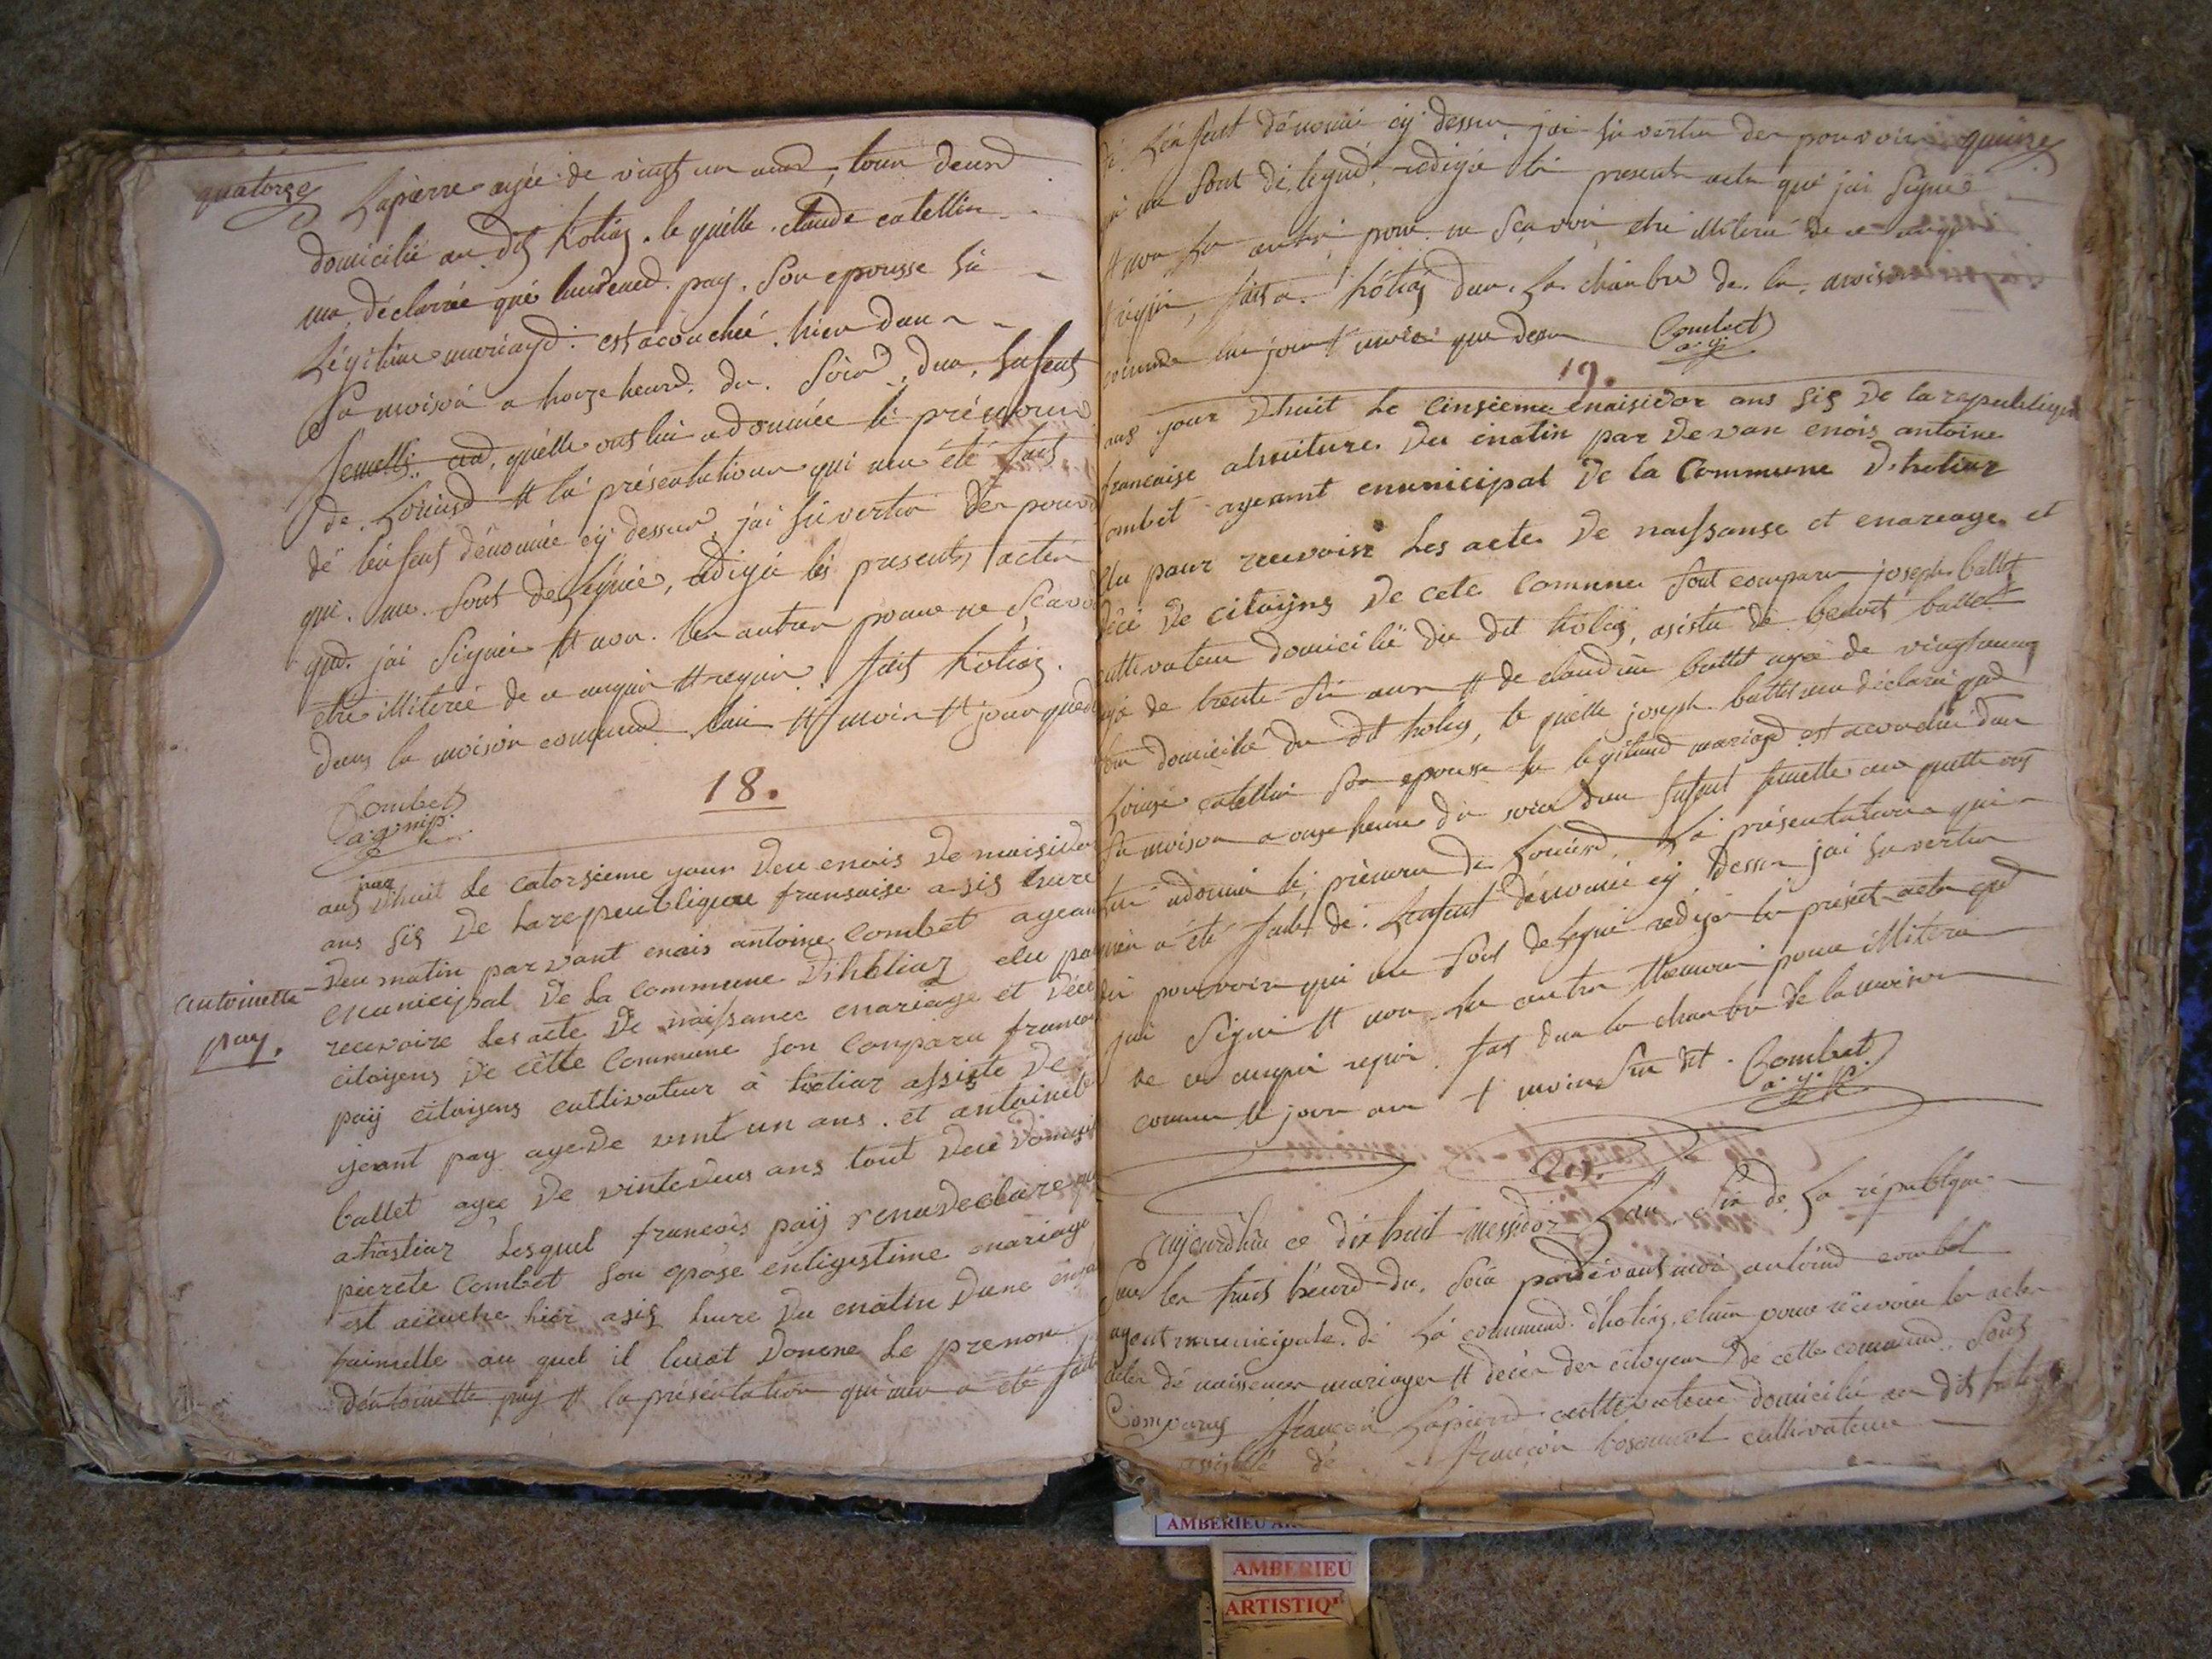 quatorze
Lapierre agée de vingt un ans, tous deux
domicilié au dit hotiaz. le quelle. claude catellin
ma déclarée que pay. son epousse
Légitime mariage. est acouchée. hier dan
Sa moison a honze heure. du. Soir. dun. Enfent
femelle. quelle ont lui a donnée le prénom
de. Louise et la présentation qui ma été fait
dé lénfent dénomée cÿ dessus, jai en vertu des pouvoir
qui. me. sont deleguée, rédigée les presents acten
que. jai Signée et non. les autres pour ne Scavoir
etre illiterée de ce enquis et requis. fait hotiaz.
dans la moison commune lan et mois et jour que
Combet
a. g. mip.
18.
aus jour Dhuit Le catorsieme your Deu enois De maisidor
ans sis De La repeubliquae fransaise a sis heure
Deu matin par vant enois antoine Combet ageant
enunicipal De La Commune Dihotiaz elu pour
recevoire Les acte De naissance enariage et Déce
citoyens De cette Commune son Conparu francois
paÿ citoisens cultivateur à hotiaz assiste De
jeant pay age De vint un ans. et antoinete
ballet agee De vinte Deus ans tout Deu Domisil
a hostiaz Lesquel francois paÿ enadeclaire que
pierete Combet Son epose enligestime enariage
est acouche hier a sis heure Du enatin Dune enfa
faimelle au quel il luiat Donne Le prenom
déntoinette pay et la présentation qui men a eté faite
antoinette
pay.
quinze
dé. Lénfent dénomé cÿ dessus, jai en vertu des pouvoir
qui me sont delegué, redigée le present acte que jai Signée
et non les autre pour ne Scavoir etre illiteré de ce enquis
requis, fait a. hotiaz dan. La chambre de. la. moison
commune les jour et mois que desu Combet
a. g.
19.
aus your Dhuit Le Cinsieme enaisidor ans sis De la republique
francaise a huiture Du enatin par Devan enois antoine
Combet ageamt enunicipal De la Commune D.hotiaz
Elu pour recevoire Les acte De naissanse et enareage et
Déce De citoÿns De cete Comune Sont comparu joseph ballet
cultivateur domicilié du dit hotiaz, asisté de benoit ballet
agé de trente Six ans et de claudine ballet agée de vingt
domicilié du dit hotiaz, le quelle joseph ballet ma déclaré que
Louise catellin Son epouse en legitime mariage est acouchée dan
Sa moison a onze heure du soir dun Enfent femelle au quelle ont
lui a donné le prénom de Louise. La présentation qui
men a été faite dé. Lenfent dénomé cÿ dessu jai en vertu
des pouvoir qui me Sont delegué redigée le présent acte que
jai Signé et non les autre themoin pour illitere
de ce enquis requis. fait dan la chambre de la moison
comune le jour an et mois Sus dit. Combet
a. g.
20.
aujourdhui ce dix huit messidor Lan Six de La républque
Sur les huit héure du. Soir pardevant moi antoine combet
agent municipale. dé La commune. dhotiaz. elu pour récevoir les acter
acter dé naissances mariages et décès des citoyens dé cette commune. Sont
Comparus françois Lapierre cultivateur domicilié au dit hotiaz
assisté dé françois cultivateur
AMBERIEU
AMBERIEU
ARTISTIQ